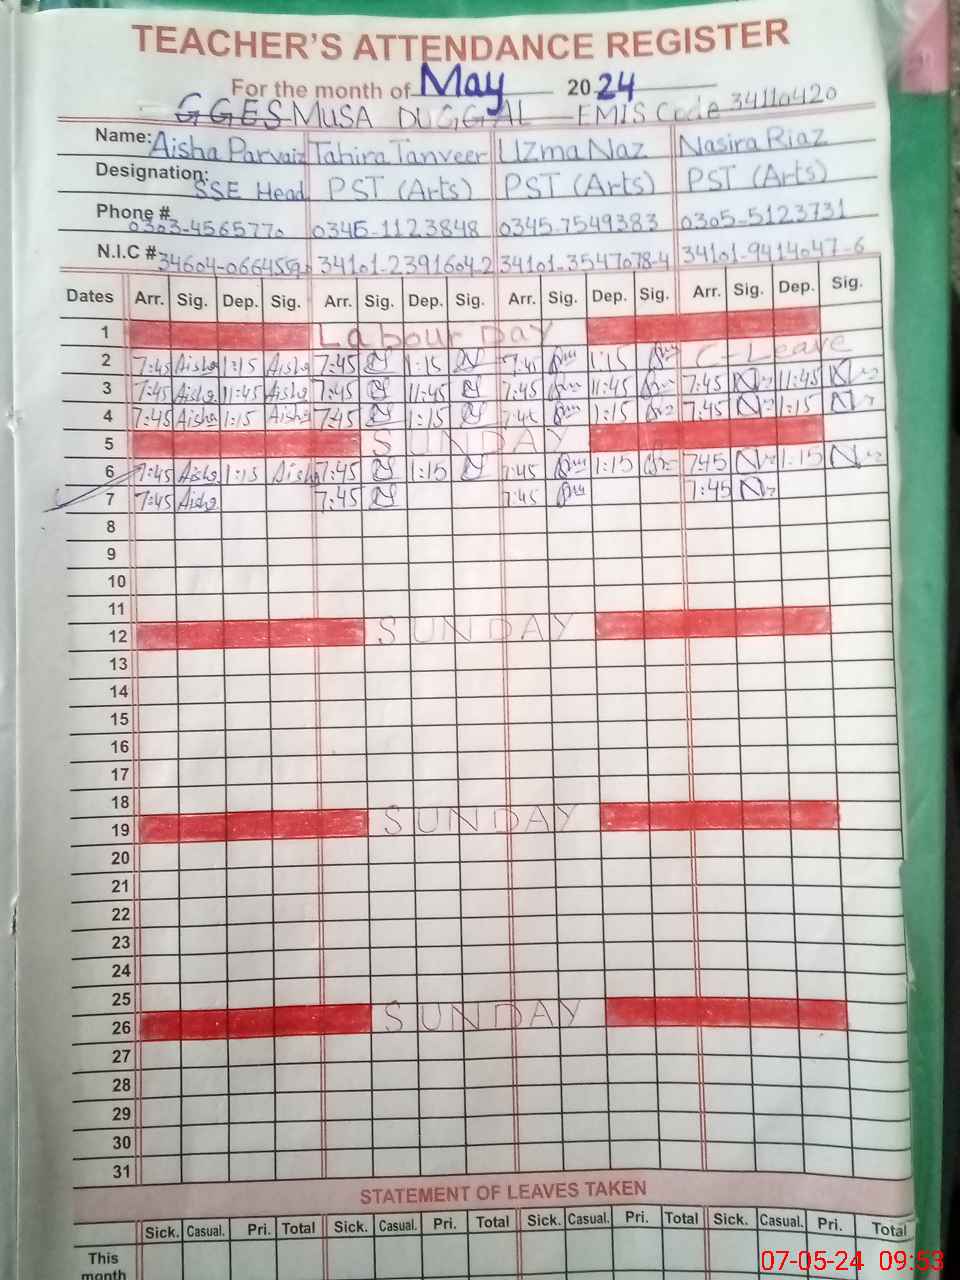 TEACHER'S ATTENDANCE REGISTER
For the month of May 2024
GGES MUSA DUGGAL EMIS Code 34110420
Name: Aisha Parvaiz Tahira Tanveer Uzma Naz Nasira Riaz
Designation: SSE Head PST (Arts) PST (Arts) PST (Arts)
Phone # 0303-4565770 0345-1123848 0345-7549383 0305-5123731
N.I.C # 34101-2391604-2 34101-3547078-4 34101-9414047-6
Dates Arr. Sig. Dep. Sig. Arr. Sig. Dep. Sig. Arr. Sig. Dep. Sig. Arr. Sig. Dep. Sig.
1 Labour Day
2 7:45 Aisha 1:15 Aisha 7:45 1:15 7:45 1:15 C-Leave
3 7:45 Aisha 11:45 Aisha 7:45 11:45 7:45 11:45 7:45 11:45
4 7:45 Aisha 1:15 Aisha 7:45 1:15 7:45 1:15 7:45 1:15
5 SUNDAY
6 7:45 Aisha 1:15 Aisha 7:45 1:15 7:45 1:15 7:45 1:15
7 7:45 Aisha 7:45 7:45 7:45
8
9
10
11
12 SUNDAY
13
14
15
16
17
18
19 SUNDAY
20
21
22
23
24
25
26 SUNDAY
27
28
29
30
31
STATEMENT OF LEAVES TAKEN
Sick. Casual. Pri. Total Sick. Casual. Pri. Total Sick. Casual. Pri. Total Sick. Casual. Pri. Total
This
month
07-05-24 09:53